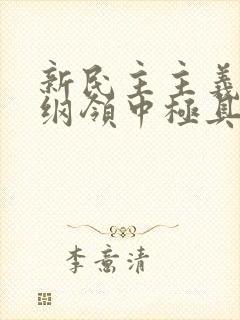 新民主主義
纲領中極具
李意清